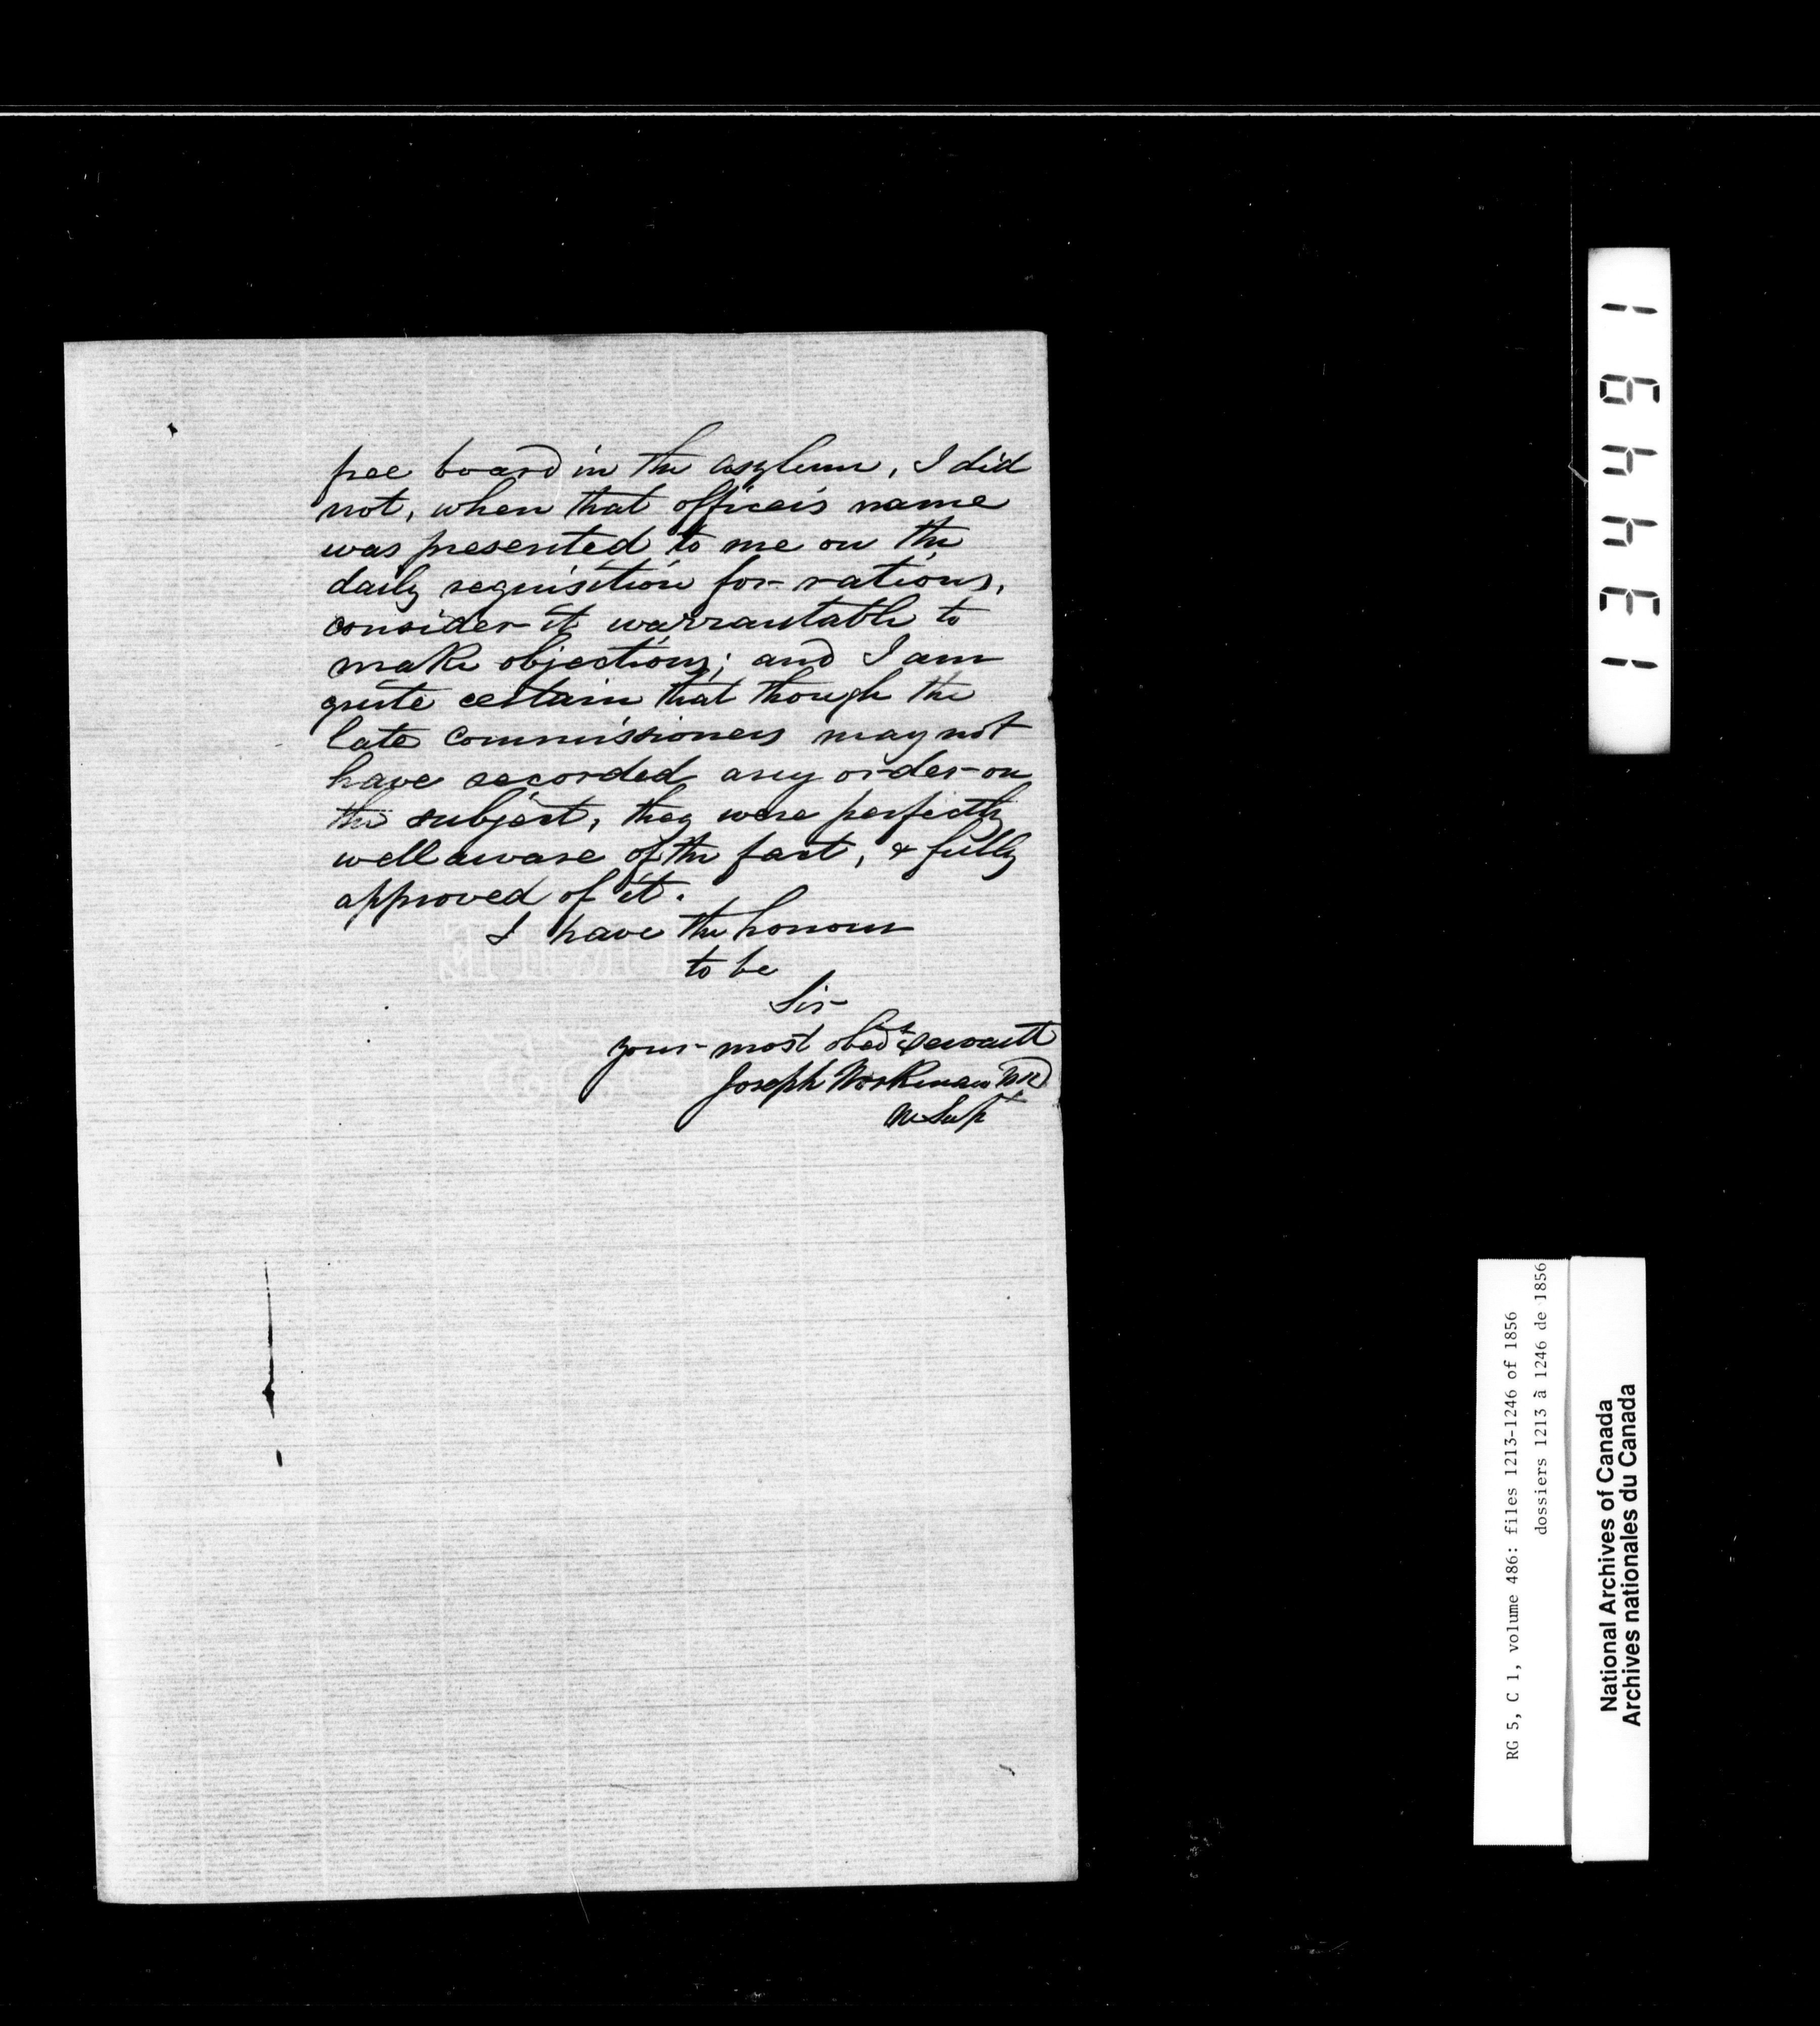 free board in the asylum, I did
not, when that officer's name
was presented to me on the
daily requisition for rations,
consider it warrantable to
make objections; and I am
quite certain that though the
late commissioners may not
have recorded any order on
the subject, they were perfectly
well aware of the fact, & fully
approved of it.
I have the honour
to be
Sir
your most obedt servant
Joseph Workman MD
M Supt
134461
RG 5, C 1, volume 486: files 1213-1246 of 1856
dossiers 1213 à 1246 de 1856
National Archives of Canada
Archives nationales du Canada